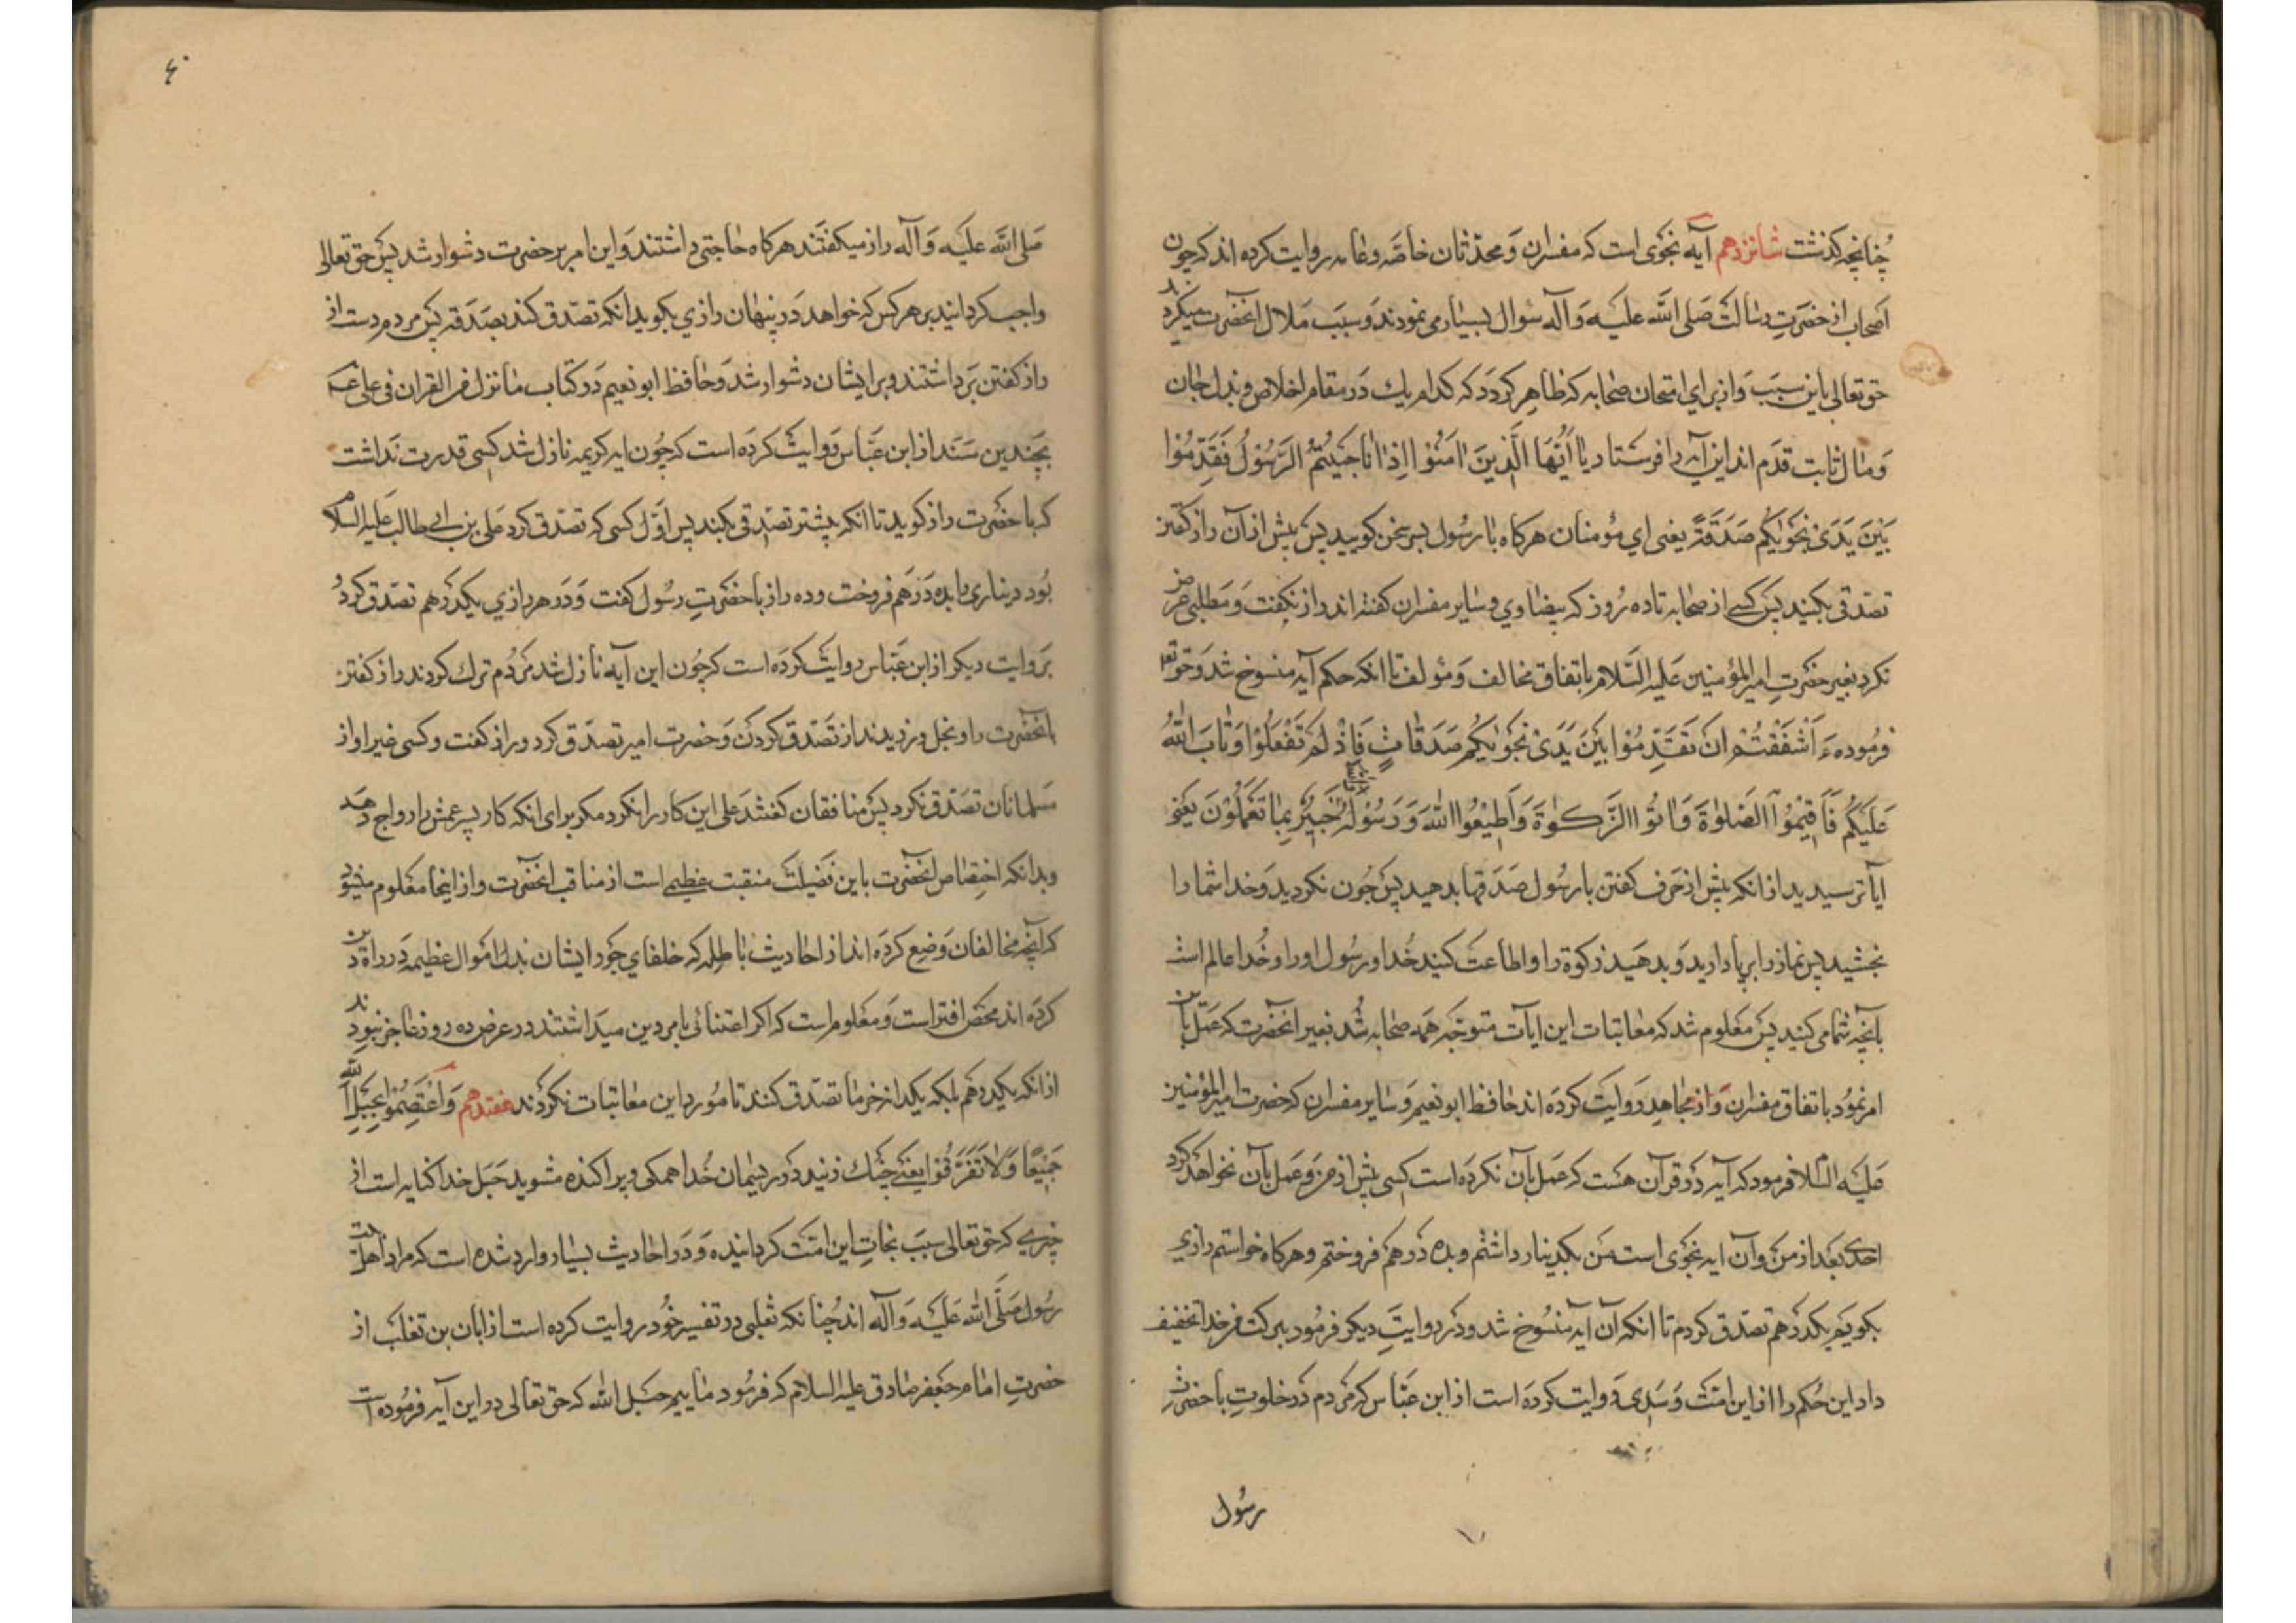 چنانچه کذشت شانزدهم آیه نجوی است که مفسران و محدّثان خاصّه و عامه روایت کرده اند که چون
اصحاب از حضرت رسالت صلی الله علیه و آله سؤال بسیار می نمودند و سبب ملال آنحضرت میکردید
حق تعالی باین سبب و از برای امتحان صحابه که ظاهر کردد که کدام یک در مقام اخلاص و بذل جان
و مال ثابت قدم اند این آیه را فرستاد یا اَیُّهَا الَّذینَ امَنُوا اِذا ناجَیْتُمُ الرَّسُولَ فَقَدِّمُوا
بَیْنَ یَدَیْ نَجْوٰیکُم صَدَقَةً یعنی ای مؤمنان هرکاه با رسول بسر سخن کویید پس پیش از آن راز کفتن
تصدقی بکنید پس کسی از صحابه تا ده روز که بیضاوی و سایر مفسران کفته اند راز نکفت و مطلبی عرض
نکرد بغیر حضرت امیرالمؤمنین علیه السّلام باتفاق مخالف و مؤلف تا آنکه حکم آیه منسوخ شد و حق تعم
فرموده ءَاَشْفَقْتُمْ اَنْ تُقَدِّمُوا بَیْنَ یَدَیْ نَجْوٰیکُمْ صَدَقاتٍ فَاِذْ لَمْ تَفْعَلُوْا وَتابَ اللهُ
عَلَیْکُمْ فَاَقیْمُوا الصَّلٰوةَ وَ اٰتُوا الزَّکٰوةَ وَ اَطیْعُوا الله وَ رَسُوْلَهُ وَاللهُ خَبیْرٌ بِما تَعْمَلُوْنَ یعنی
آیا ترسیدید از آنکه پیش از حرف کفتن با رسول صدقها بدهید پس چون نکردید و خدا شما را
بخشید پس نماز را برپا دارید و بدهید زکوة را و اطاعت کنید خدا و رسول او را و خدا عالم است
بآنچه شما می کنید پس معلوم شد که معاتبات این ایات متوجه همه صحابه شد بغیر آنحضرت که عمل باین
امر نمود باتفاق مفسران و از مجاهد روایت کرده اند حافظ ابو نعیم و سایر مفسران که حضرت امیرالمؤمنین
علیه السلام فرمود که آیه در قرآن هست که عمل بآن نکرده است کسی پیش از من و عمل بآن نخواهد کرد
احدی بعد از من و آن ایه نجوی است من یکدینار داشتم و بده درهم فروختم و هرکاه خواستم رازی
بکویم یکدرهم تصدق کردم تا آنکه آن آیه منسوخ شد و در روایت دیکر فرمود ببرکت من خدا تخفیف
داد این حکم را از این امت و سدی روایت کرده است از ابن عباس که مردم در خلوت با حضرت
رسول
۴۰
صلی الله علیه و آله راز میکفتند هرکاه حاجتی داشتند و این امر بر حضرت دشوار شد پس حق تعالی
واجب کردانید بر هر کس که خواهد در پنهان رازی بکوید آنکه تصدق کند بصدقه پس مردم دست از
راز کفتن برداشتند و بر ایشان دشوار شد و حافظ ابو نعیم در کتاب ما نزل من القران فی علی عم
بچندین سند از ابن عباس روایت کرده است که چون ایه کریمه نازل شد کسی قدرت نداشت
که با حضرت راز کوید تا آنکه پیشتر تصدقی بکند پس اوّل کسی که تصدق کرد علی بن ابی طالب علیه السلام
بود دیناری را بده درهم فروخت و ده راز با حضرت رسول کفت و در هر رازی یکدرهم تصدق کرد
بروایت دیکر از ابن عباس روایت کرده است که چون این آیه نازل شد مردم ترک کردند راز کفتن
بآنحضرت را و بخل ورزیدند از تصدق کردن و حضرت امیر تصدق کرد و راز کفت و کسی غیر او از
مسلمانان تصدق نکرد پس منافقان کفتند علی این کار را نکرد مکر برای آنکه کار پسر عمش را رواج دهد
و بدانکه اختصاص آنحضرت باین فضیلت منقبت عظیمی است از مناقب آنحضرت و از اینجا معلوم میشود
که آنچه مخالفان وضع کرده اند از احادیث باطله که خلفای جور ایشان بذل اموال عظیمه در راه دین
کرده اند محض افتراست و معلوم است که اکر اعتنائی بامر دین میداشتند در عرض ده روز عاجز نبودند
از آنکه یکدرهم بلکه یکدانه خرما تصدق کنند تا مورد این معاتبات نکردند هفتدهم وَ اعْتَصِمُوا بِحَبْلِ الله
جَمیْعًا وَلا تَفَرَّقُوا یعنی چنک زنید در ریسمان خدا همکی و پراکنده مشوید حبل خدا کنایه است از
چیزی که حق تعالی سبب نجات این امت کردانیده و در احادیث بسیار وارد شده است که مراد اهل بیت
رسول صلّی الله علیه و آله اند چنانکه ثعلبی در تفسیر خود روایت کرده است از ابان بن تغلب از
حضرت امام جعفر صادق علیه السلام که فرمود ماییم حبل الله که حق تعالی در این آیه فرموده است